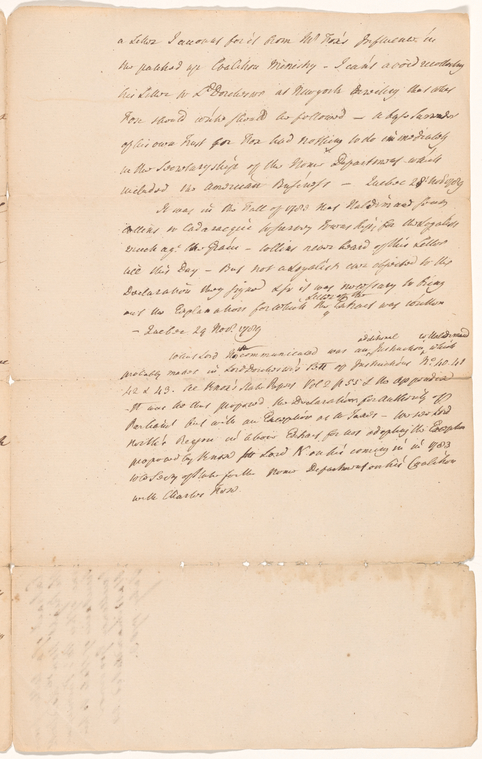 a Letter I account for it from Mr Fox's Influence in
the patched up Coalition Ministry – I can't avoid recollecting
his Letter to Ld Dorchester at Newyork directing that what
Fox should write should be followed – a base surrender
of his own Trust for Fox had nothing to do immediately
in the Secretaryship of the Home Department which
included the American Business – Quebec 24 Novr 1789
It was in the Fall of 1783 that Haldimand sent
Collins to Cadaracqui to survey Townships for the Loyalists
much agt the Grain – Collins never heard of this Letter
till this Day – But not a Loyalist ever objected to the
Declaration they signed & so it was necessary to bring
out the Explanation for which the Letter of the Extract was written
– Quebec 24 Novr 1789
What Lord N communicated was an additional Instruction to Haldimand which
probably makes in Lord Dorchester's Book of Instructions No. 40. 41
42 & 43. See Knox's State Papers Vol 2 p. 55 & the appendix
– It was he that proposed the Declaration for Authority of
Parliament but with an Exception as to Trade – We see Lord
North's Reason in above Extract for not adopting the Exception
proposed by Knox to Lord N on his coming in in 1783
to be Secy of State for the Home Department on his Coalition
with Charles Fox